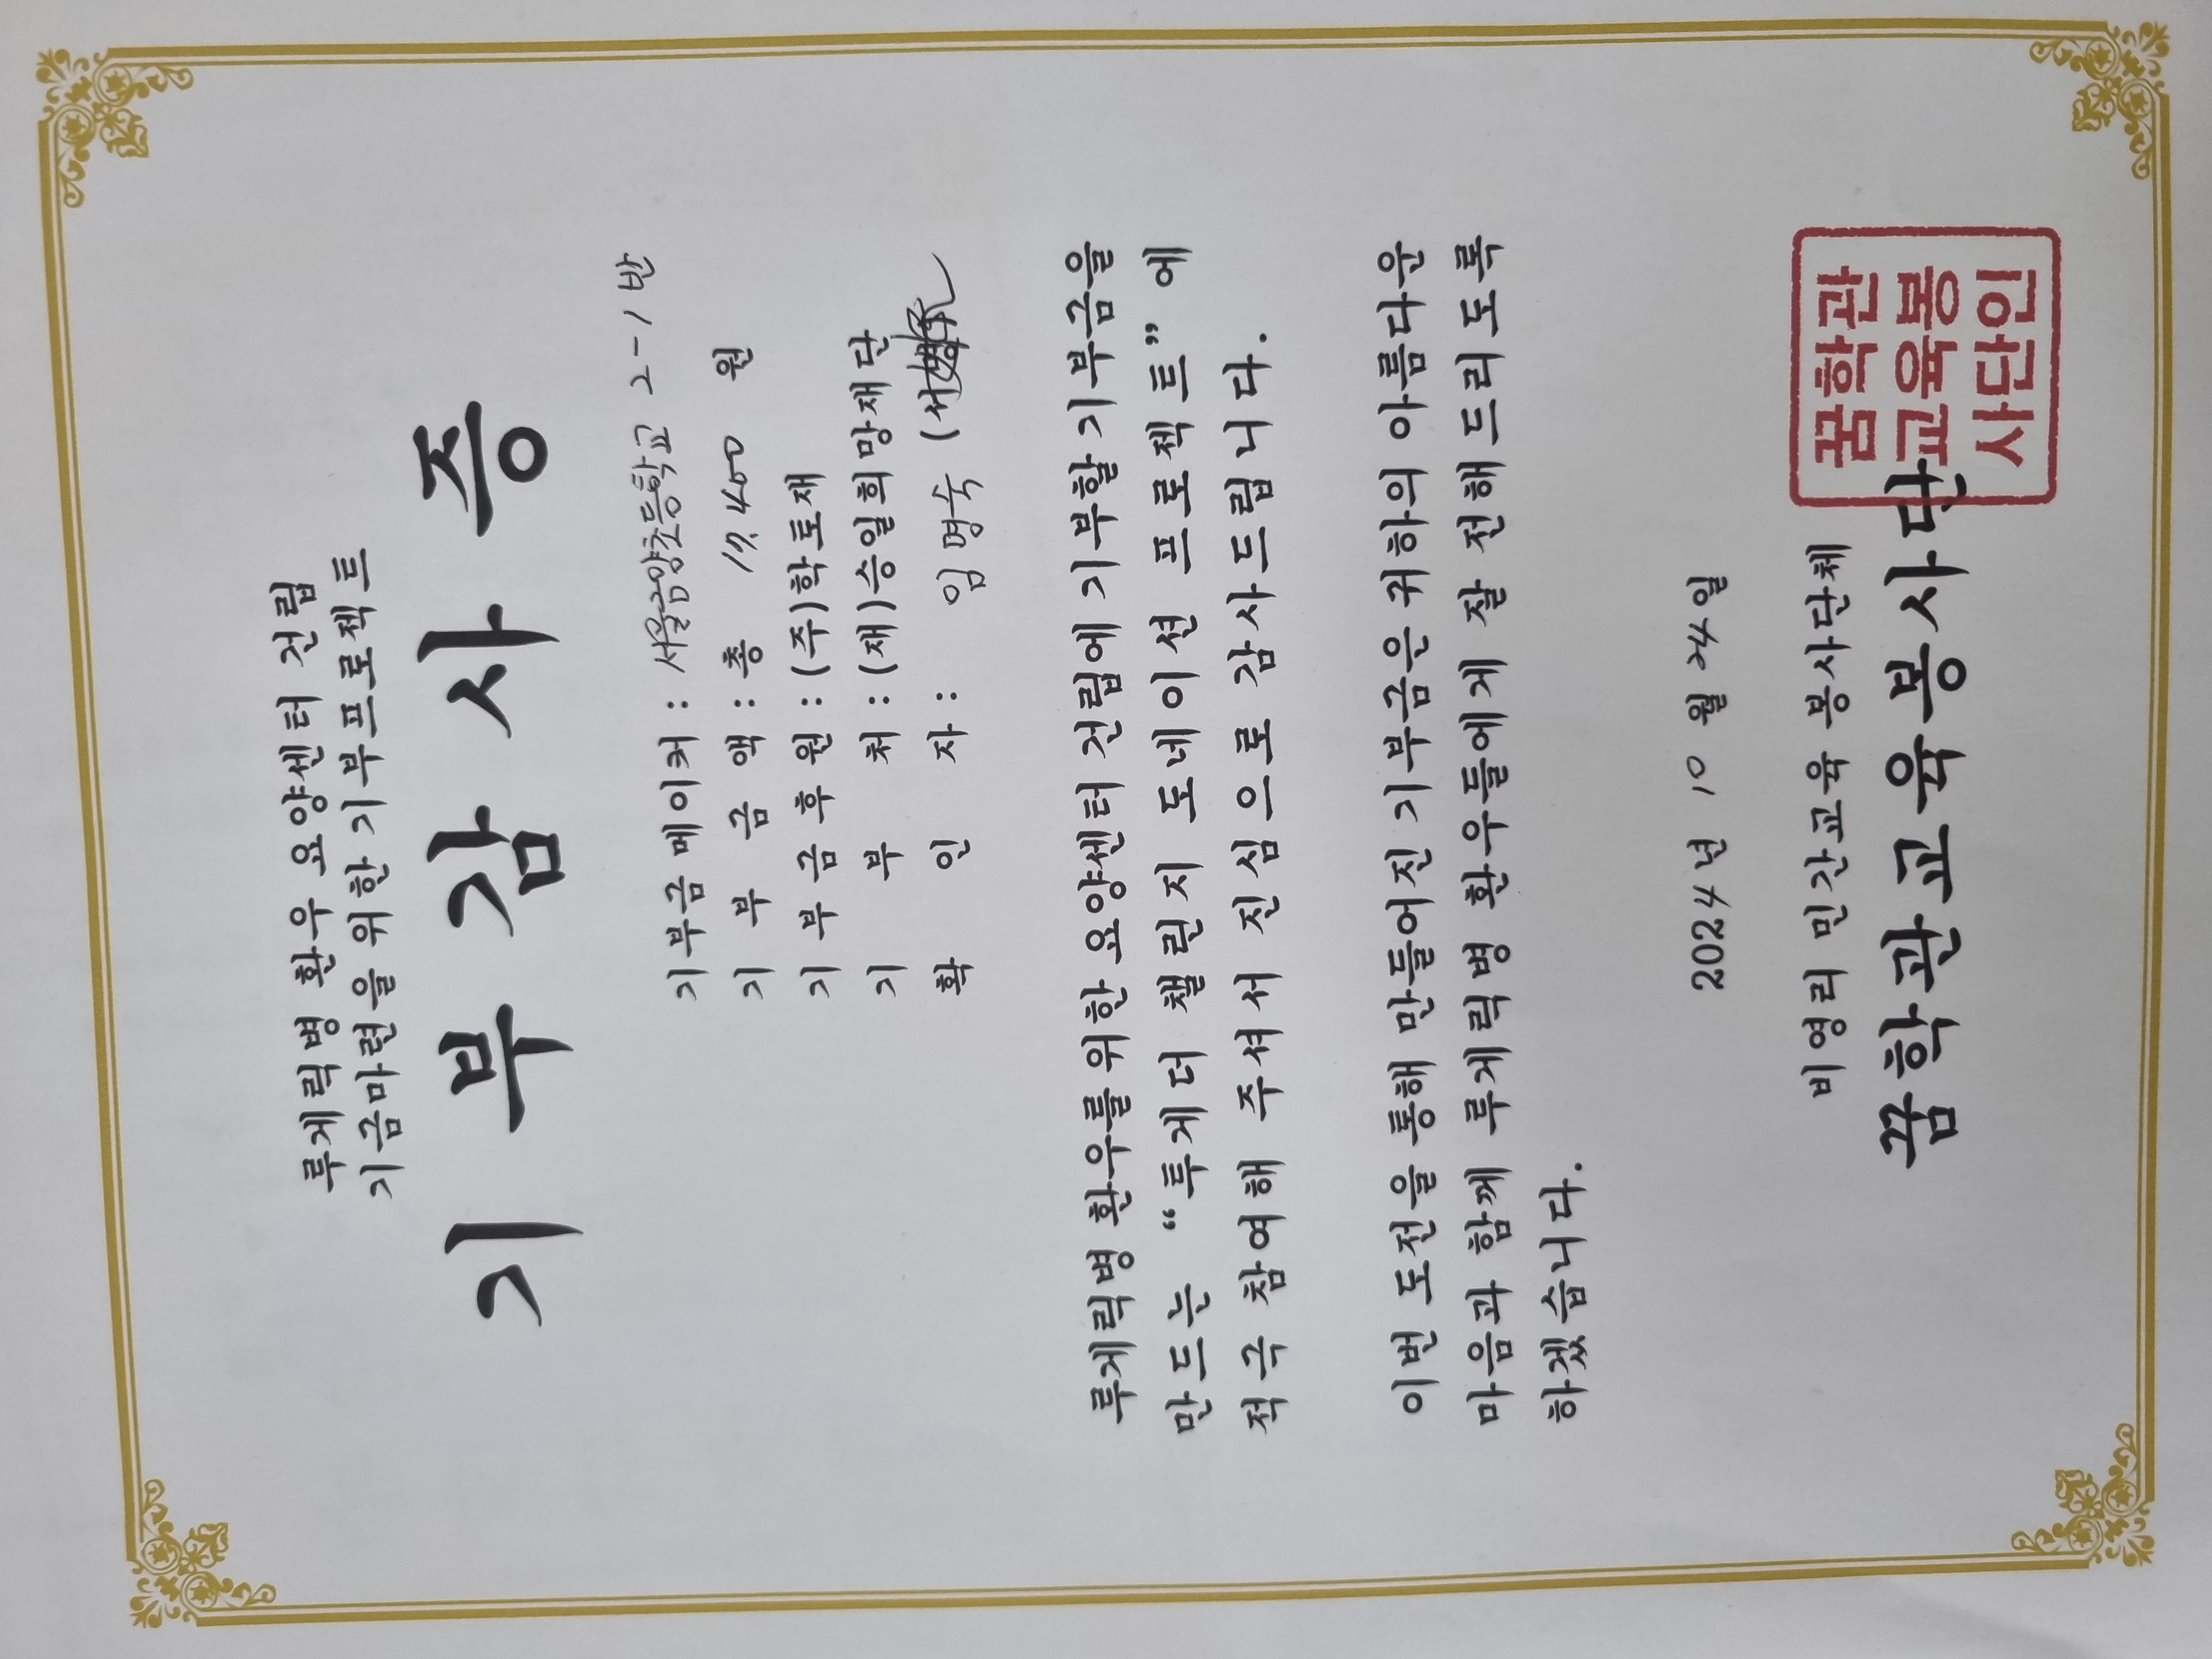 루게릭병 환우 요양센터 건립
기금마련을 위한 기부프로젝트
기 부 감 사 증
기부금메이커 : 서울금양초등학교 2-1반
기 부 금 액 : 총 17,400 원
기부금후원 : (주)학토재
기 부 처 : (재)승일희망재단
확 인 자 : 임명숙 (서명)
루게릭병 환우를 위한 요양센터 건립에 기부할 기부금을
만드는 “투게더 챌린지 도네이션 프로젝트”에
적극 참여해 주셔서 진심으로 감사드립니다.
이번 도전을 통해 만들어진 기부금은 귀하의 아름다운
마음과 함께 루게릭병 환우들에게 잘 전해드리도록
하겠습니다.
2024년 10월 24일
비영리 민간교육 봉사단체
꿈학관교육봉사단
꿈학관
교육봉
사단인